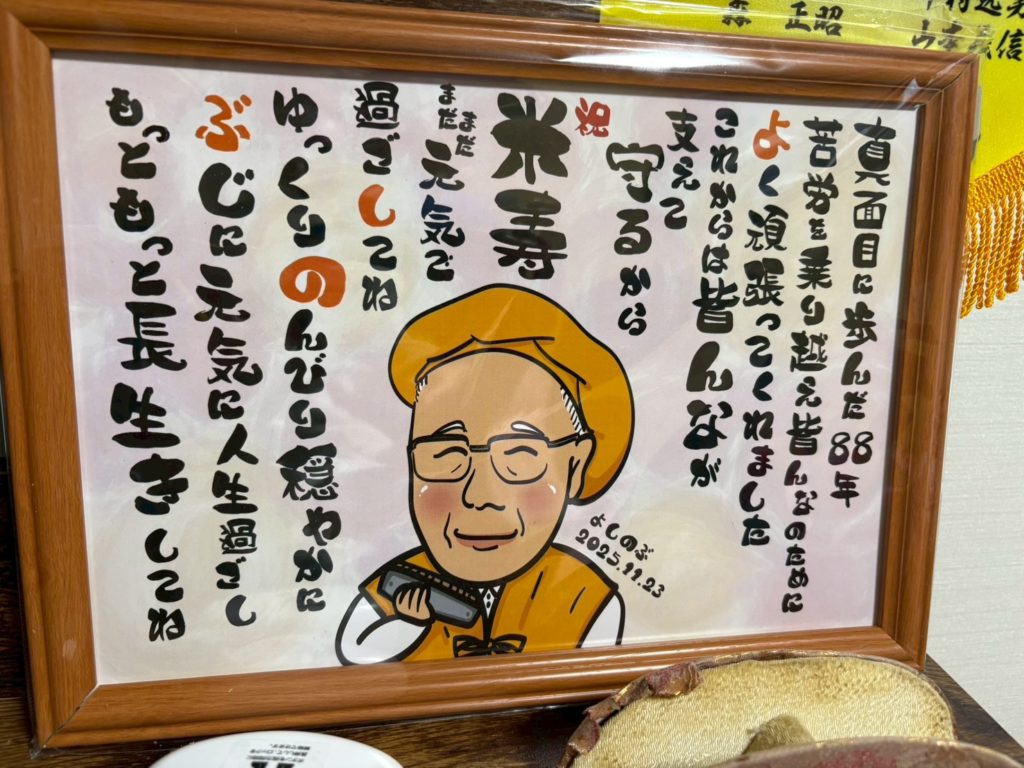 真面目に歩んだ88年
苦労を乗り越え皆んなのために
よく頑張ってくれました
これからは皆んなが
支えて
守るから
祝
米寿
まだまだ元気で
過ごしてね
ゆっくりのんびり穏やかに
ぶじに元気に人生過ごし
もっともっと長生きしてね
よしのぶ
2025.11.23
正昭
信